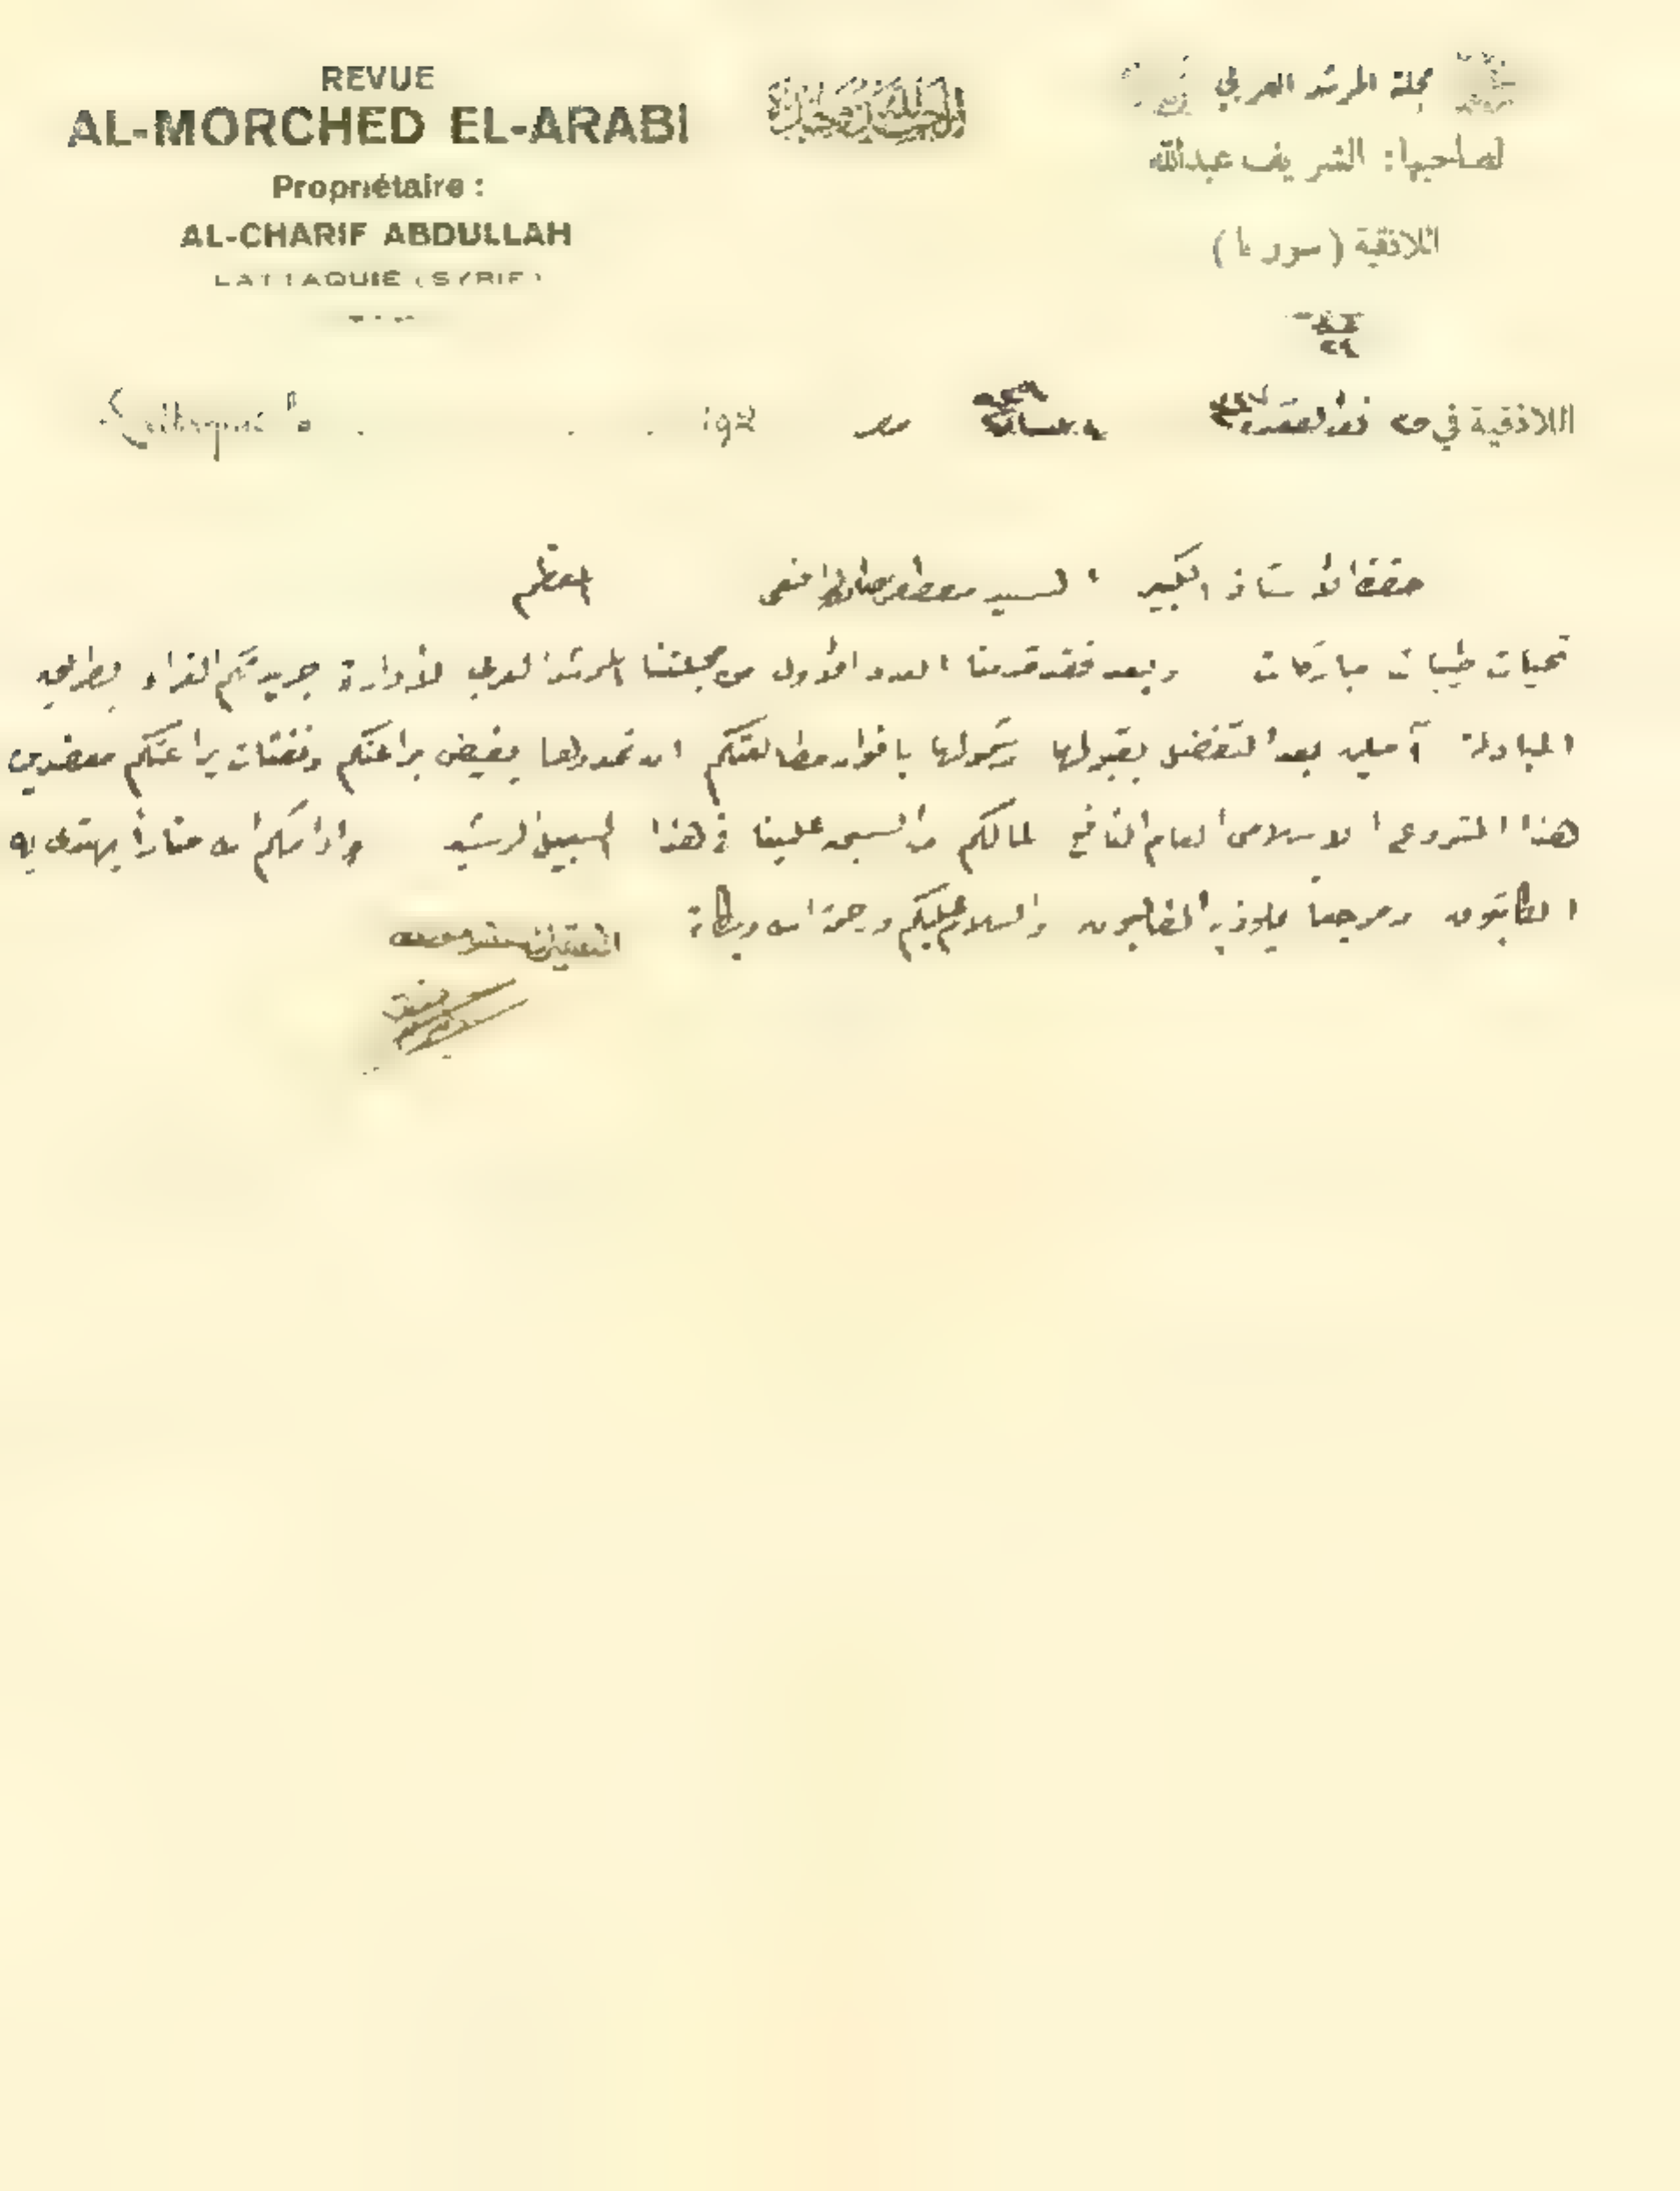 REVUE
AL-MORCHED EL-ARABI
Propriétaire :
AL-CHARIF ABDULLAH
LATTAQUIÉ (SYRIE)
مجلة المرشد العربي
لصاحبها: الشريف عبدالله
اللاذقية (سوريا)
اللاذقية في
Lattaquié le 193
حضرة الأستاذ الكبير السيد مصطفى صادق الرافعي المعظم
تحيات طيبات مباركات وبعد فقد قدمنا العدد الأول من مجلتنا المرشد العربي لأدارة جريدتكم الغراء بطريق
المبادلة آملين بعد التفضل بقبولها وشمولها بانوار مطالعتكم ان تمدوها بفيض يراعتكم ونفثات يراعتكم معضدين
هذا المشروع الاسلامي العام النافع لمالكم من السبق علينا في هذا السبيل الرشيد وادامكم الله مناراً يهتدى به
الكاتبون ومرجعاً يلوذ به الطالبون والسلام عليكم ورحمة الله وبركاته